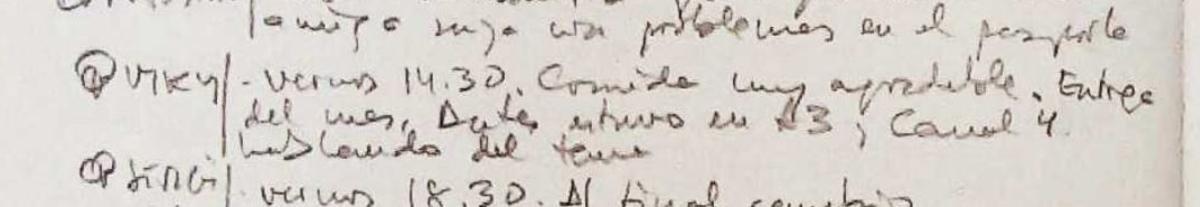 amiga suya con problemas en el pasaporte
P VIKY/. vernos 14.30. Comida muy agradable. Entrega
del mes. Antes estuvo en A3 y Canal 4
hablando del tema
P SERGI/. vernos 18.30. Al final cambia